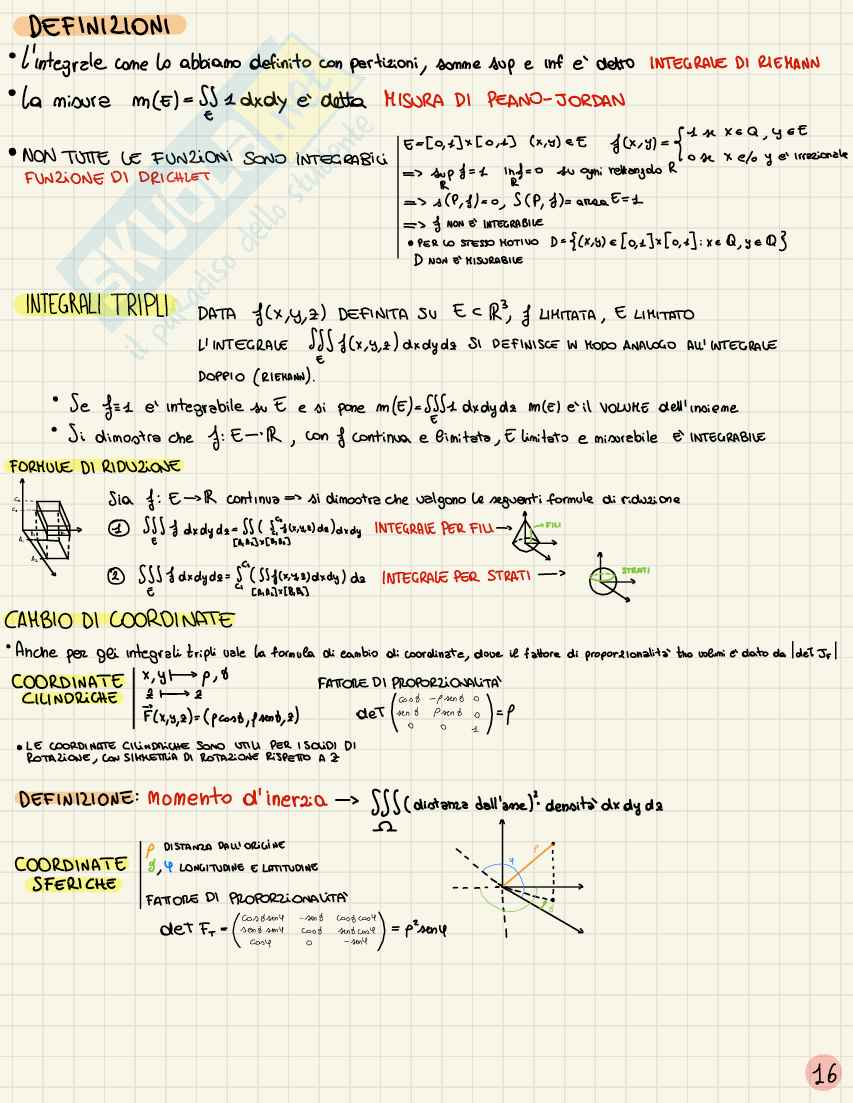 DEFINIZIONI
• L'integrale come lo abbiamo definito con partizioni, somme sup e inf e' detto INTEGRALE DI RIEMANN
• La misura m(E)=∬_E 1 dxdy e' detta MISURA DI PEANO-JORDAN
• NON TUTTE LE FUNZIONI SONO INTEGRABILI
FUNZIONE DI DRICHLET
E=[0,1]×[0,1] (x,y)∈E f(x,y)={1 se x∈Q, y∈E
0 se x e/o y e' irrazionale
=> sup_R f=1 inf_R f=0 su ogni rettangolo R
=> s(P,f)=0, S(P,f)=area E=1
=> f NON E' INTEGRABILE
• PER LO STESSO MOTIVO D={(x,y)∈[0,1]×[0,1]: x∈Q, y∈Q}
D NON E' MISURABILE
INTEGRALI TRIPLI
DATA f(x,y,z) DEFINITA SU E⊂R³, f LIMITATA, E LIMITATO
L'INTEGRALE ∭_E f(x,y,z) dxdydz SI DEFINISCE IN MODO ANALOGO ALL'INTEGRALE
DOPPIO (RIEMANN).
• Se f≡1 e' integrabile su E e si pone m(E)=∭_E 1 dxdydz m(E) e' il VOLUME dell'insieme
• Si dimostra che f: E→R, con f continua e limitata, E limitato e misurabile E' INTEGRABILE
FORMULE DI RIDUZIONE
Sia f: E→R continua => si dimostra che valgono le seguenti formule di riduzione
① ∭_E f dxdydz=∬ ( f(x,y,z)dz)dxdy INTEGRALE PER FILI → FILI
② ∭_E f dxdydz=∫ (∬f(x,y,z)dxdy) dz INTEGRALE PER STRATI → STRATI
CAMBIO DI COORDINATE
• Anche per gli integrali tripli vale la formula di cambio di coordinate, dove il fattore di proporzionalita' tra volumi e' dato da |det J_F|
COORDINATE
CILINDRICHE
x,y ↦ ρ,ϑ
z ↦ z
F⃗(x,y,z)=(ρcosϑ, ρsenϑ, z)
FATTORE DI PROPORZIONALITA'
det (cosϑ -ρsenϑ 0
senϑ ρcosϑ 0
0 0 1) = ρ
• LE COORDINATE CILINDRICHE SONO UTILI PER I SOLIDI DI
ROTAZIONE, CON SIMMETRIA DI ROTAZIONE RISPETTO A Z
DEFINIZIONE: Momento d'inerzia → ∭_Ω (distanza dall'asse)²· densita' dx dy dz
COORDINATE
SFERICHE
ρ DISTANZA DALL'ORIGINE
ϑ, φ LONGITUDINE E LATITUDINE
FATTORE DI PROPORZIONALITA'
det F_T = (cosϑsenφ -senϑ cosϑcosφ
senϑsenφ cosϑ senϑcosφ
cosφ 0 -senφ) = ρ²senφ
φ ρ
16
SKUOLA.net
il paradiso dello studente